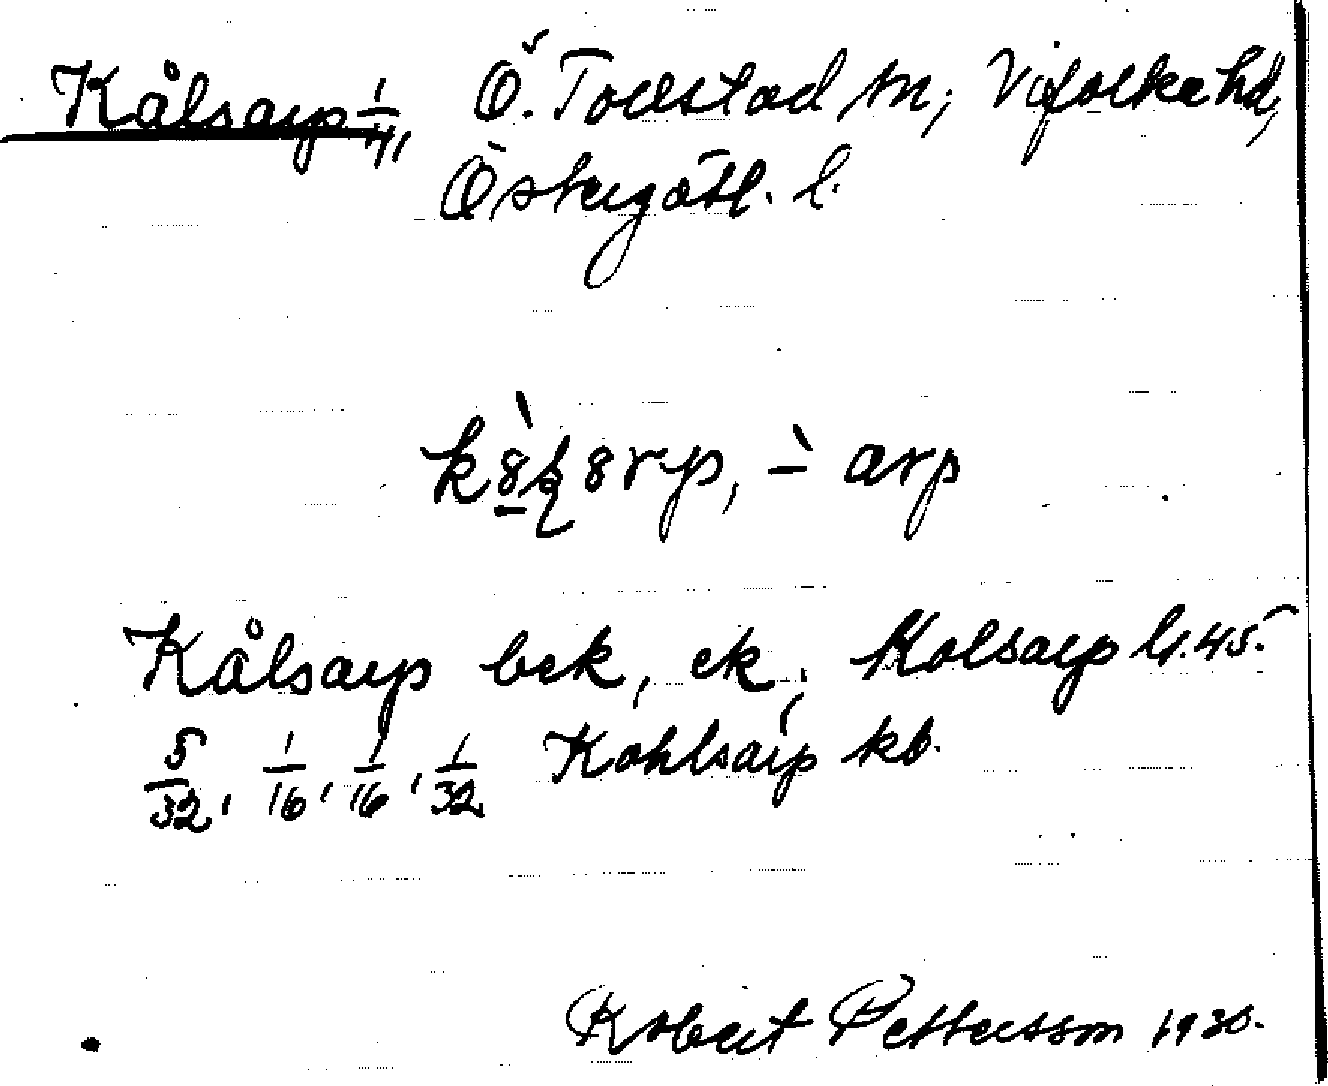 Kålsarp 1/4, Ö. Tollstad sn, Vifolka hd,
Östergötl. l.
Kålsarp bek, ek, Kolsarp lr. 45.
5/32, 1/16, 1/16, 1/32 Kohlsarp kb.
Robert Pettersson 1930.